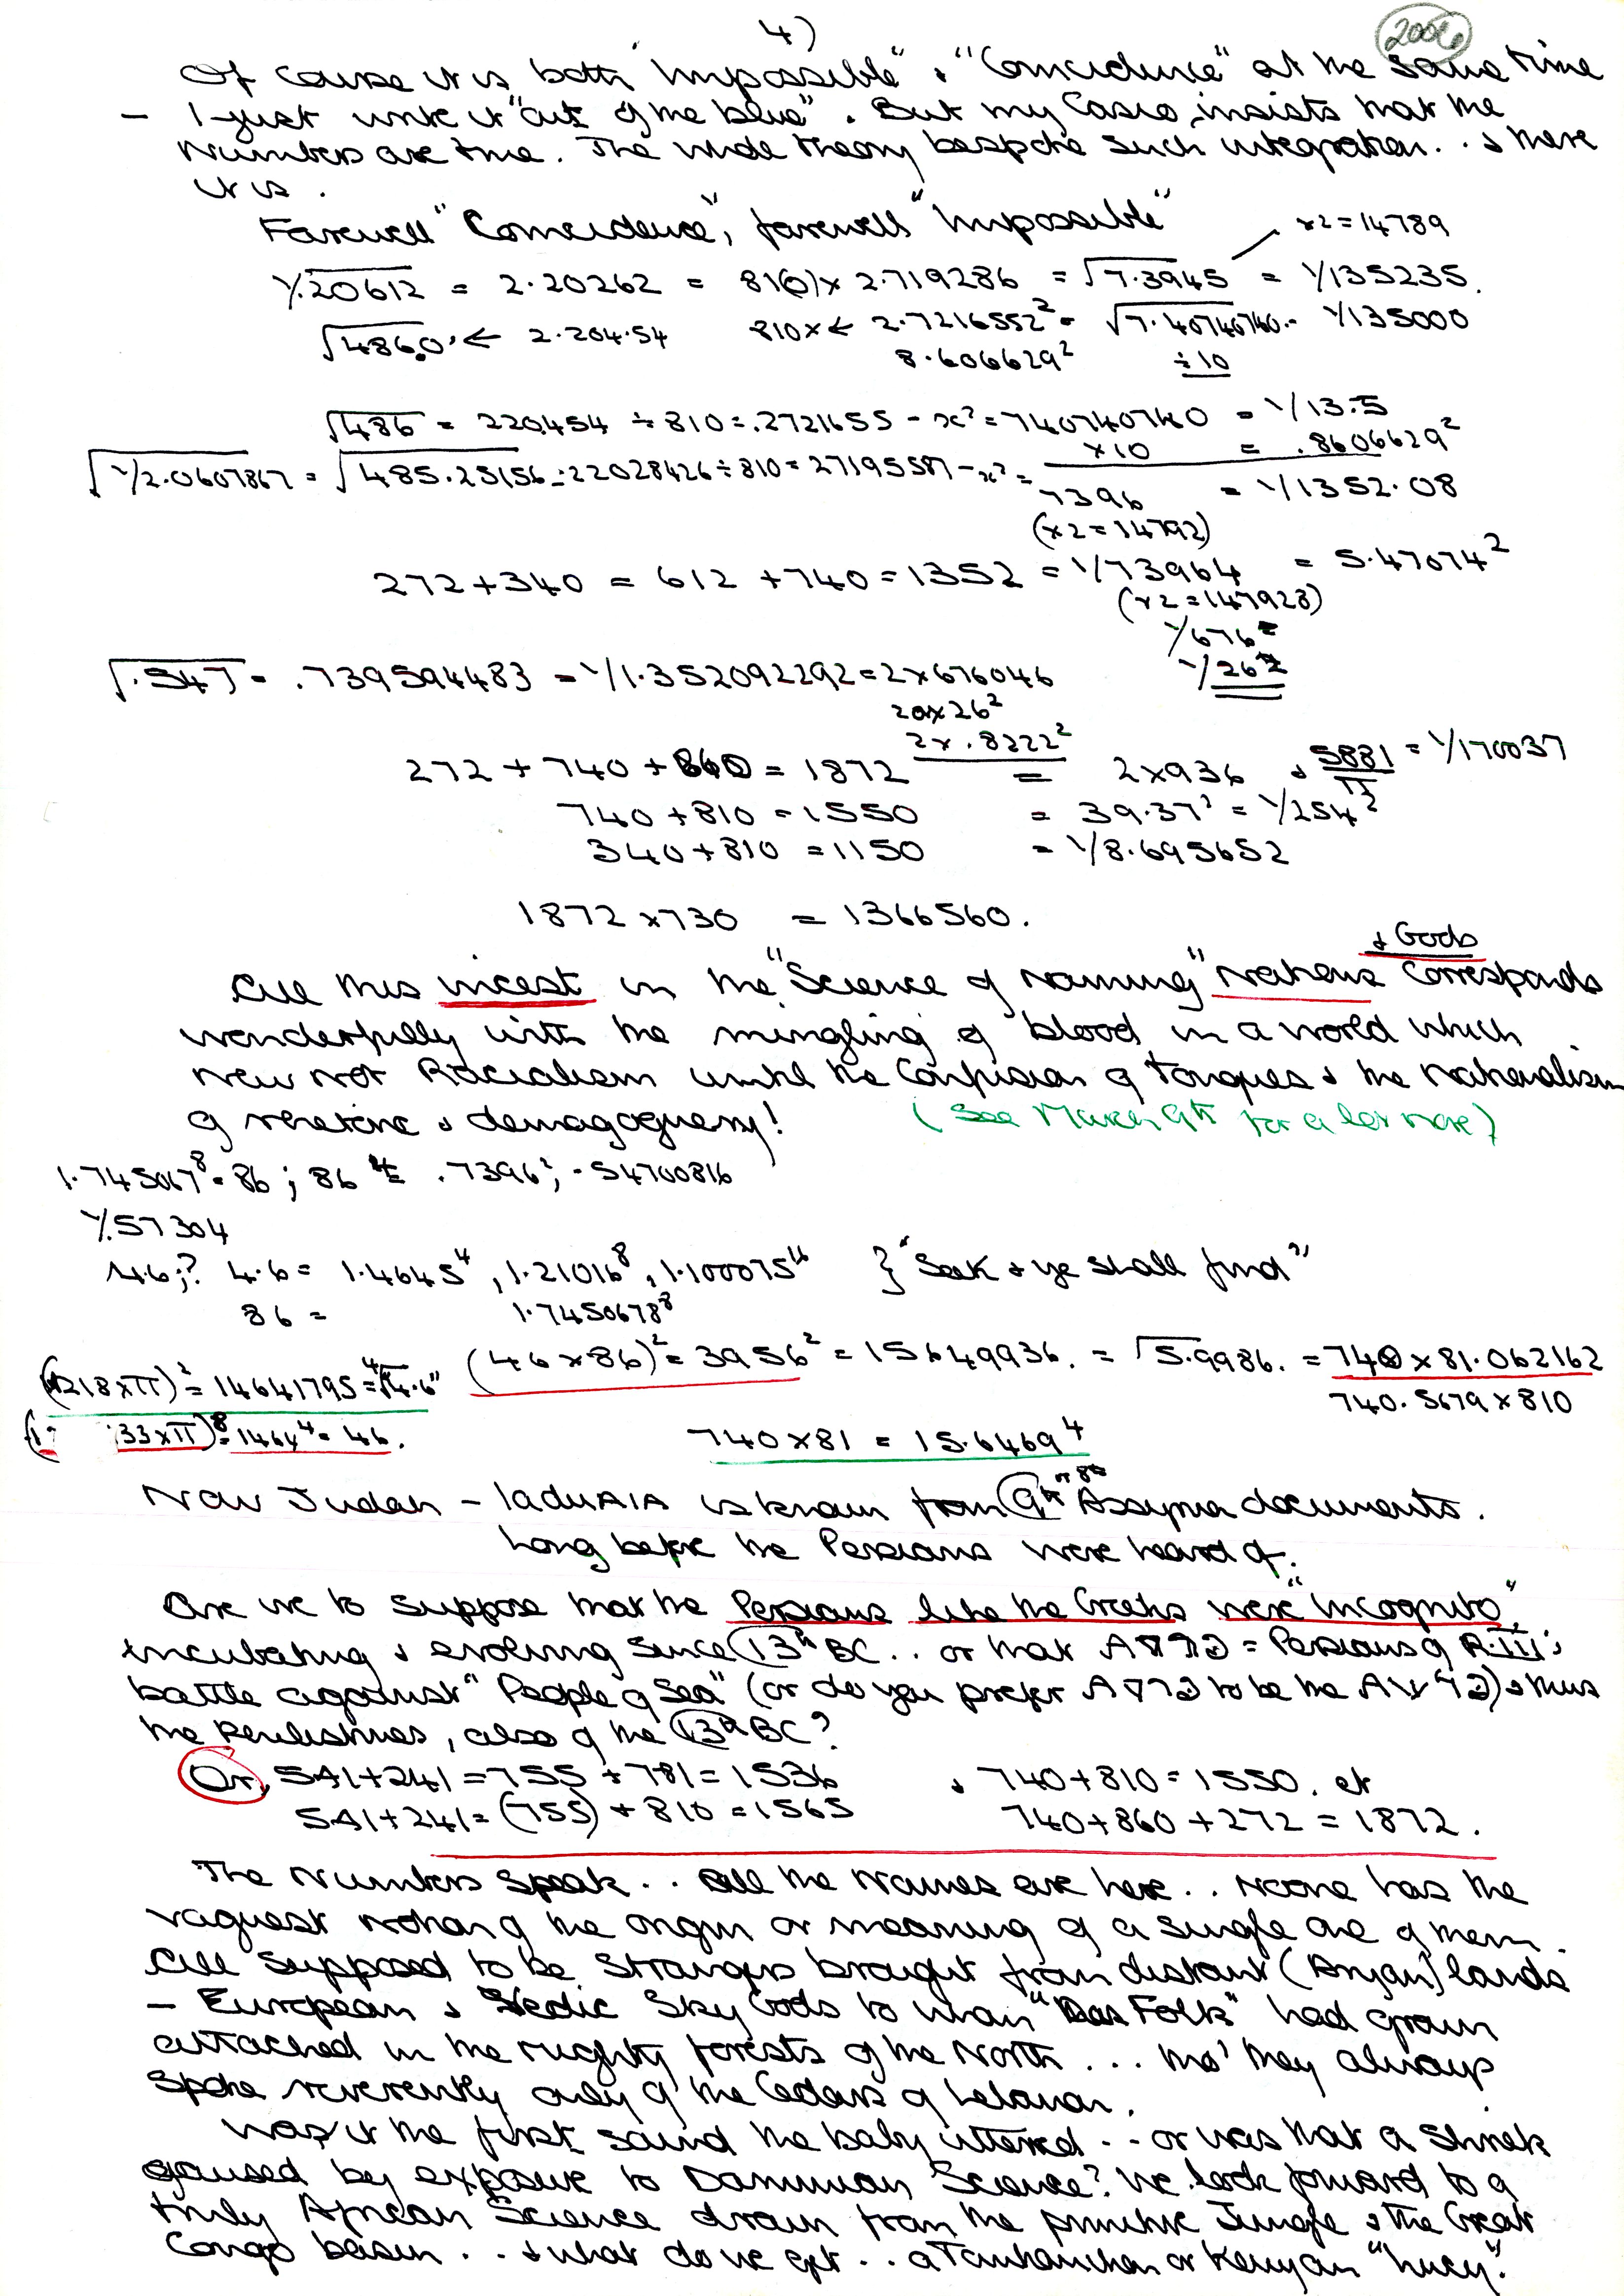 4)
2006
Of course it is both "Impossible" & "Coincidence" at the same time
- I just write it "out of the blue". But my Casio insists that the
numbers are true. The whole theory bespoke such integration.. & there
it is.
Farewell "Coincidence", farewell "Impossible"
x2=14789
1/.20612 = 2.20262 = 81(0)x 2.719286 = √7.3945 = 1/135235.
√486.0 ← 2.204.54 810x← 2.7216552² = √7.40740740.. 1/135000
8.606629² ÷10
√486 = 220.454 ÷810=.2721655 - x²=740740740 = 1/13.5
x10 = .8606629²
√1/2.0607867 = √485.25156=22028426÷810=27195587-x²= 7396 = 1/1352.08
(x2=14792)
272+340 = 612 +740=1352 = 1/73964 = 5.47074²
(x2=147928)
1/676=
1/26²
√.547 = .739594483 = 1/1.352092292=2x676046
20x26²
2x.8222²
272+740+860=1872 = 2x936 & 5881/π = 1/170037
740+810=1550 = 39.37² = 1/254²
340+810=1150 = 1/8.695652
1872x730 = 1366560.
& Gods
All this incest in the "Science of Naming" Nations corresponds
wonderfully with the mingling of blood in a world which
knew not Racialism until the Confusion of Tongues & the Nationalism
of rhetoric & demagoguery! (See March 9th for a lot more)
1.745067⁸=86; 86⁴= .7396²; =54700816
1/.57304
4.6;? 4.6= 1.4645⁴, 1.21016⁸, 1.100075¹⁶ } "Seek & ye shall find"
86 = 1.7450678⁸
(4218xπ)²=14641795=⁴√4.6" (46x86)²=3956²=15649936. = √5.9986. =740x81.062162
740.5679x810
33xπ)⁸=1464⁴=46. 740x81=15.6469⁴
Now Judah - IadUAIA is known from 9th or 8th Assyrian documents.
Long before the Persians were heard of.
Are we to suppose that the Persians like the Greeks were "Incognito"
incubating & evolving since 13th BC.. or that = Persians of R.III's
battle against "People of Sea" (or do you prefer to be the ) & thus
the Philistines, also of the 13th BC?
Or, 541+241=755+781=1536 & 740+810=1550. et
541+241=(755)+810=1565 740+860+272=1872.
The Numbers speak.. all the Names are here.. Noone has the
vaguest notion of the origin or meaning of a single one of them.
All supposed to be strangers brought from distant (Aryan) lands
- European & Vedic Sky Gods to whom "Das Folk" had grown
attached in the mighty forests of the North... tho' they always
spoke reverently only of the Cedars of Lebanon.
Was it the first sound the baby uttered.. or was that a shriek
caused by exposure to Darwinian Science? We look forward to a
truly African Science drawn from the primitive Jungle & the Great
Congo basin.. & what do we get.. a Tanzanian or Kenyan "Lucy".